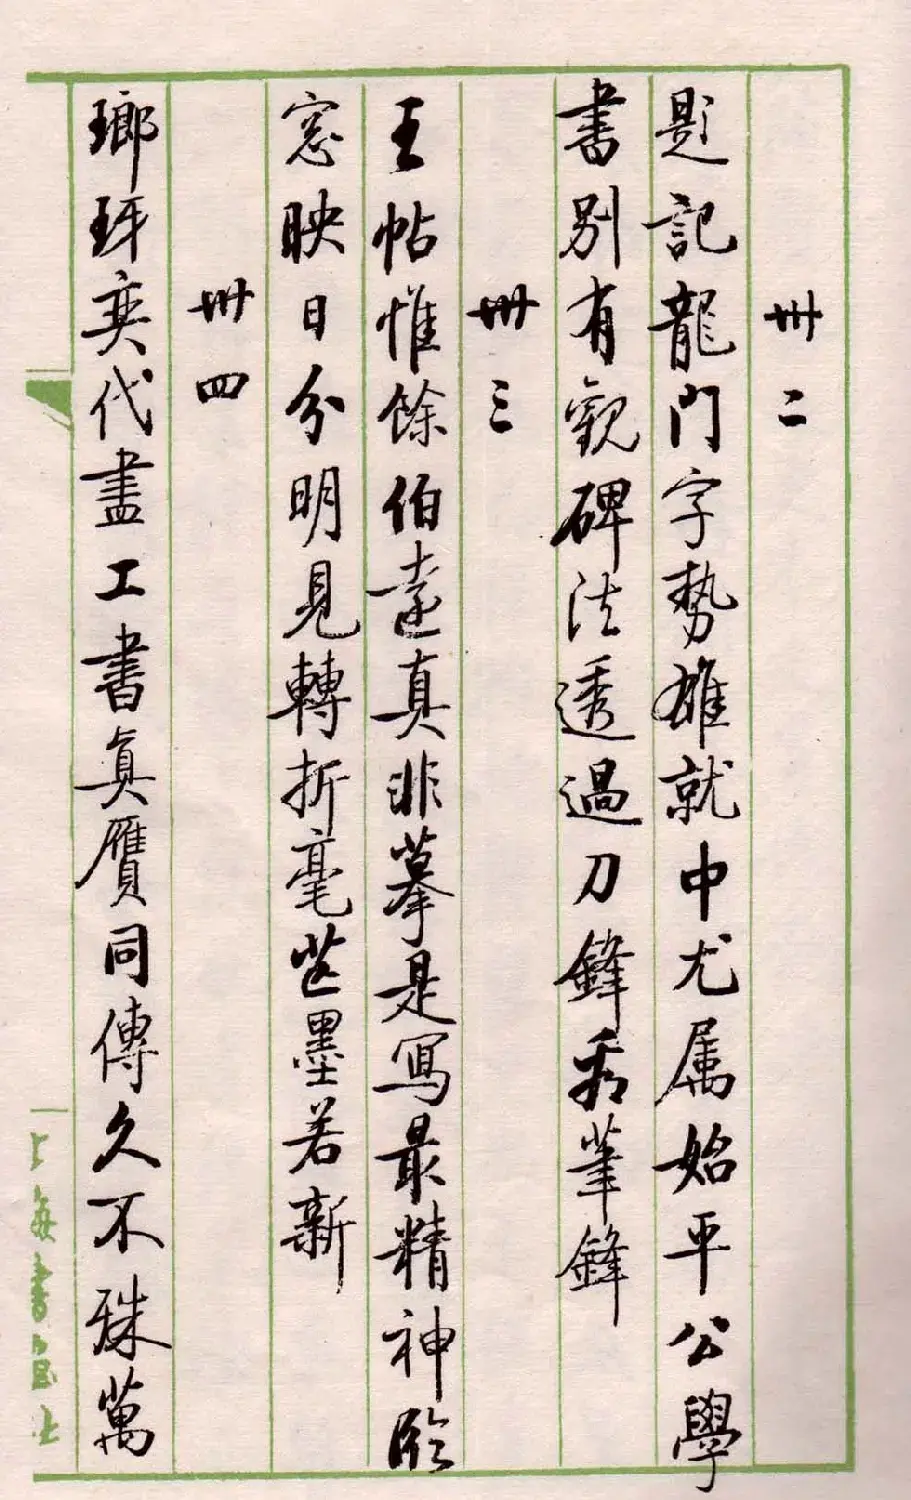 卌二
題記龍門字勢雄就中尤属始平公學
書别有觀碑法透過刀鋒看筆鋒
卌三
王帖惟餘伯遠真非摹是寫最精神臨
窓映日分明見轉折毫芒墨若新
卌四
瑯玡奕代盡工書真贋同傳久不殊萬
上海書畫社